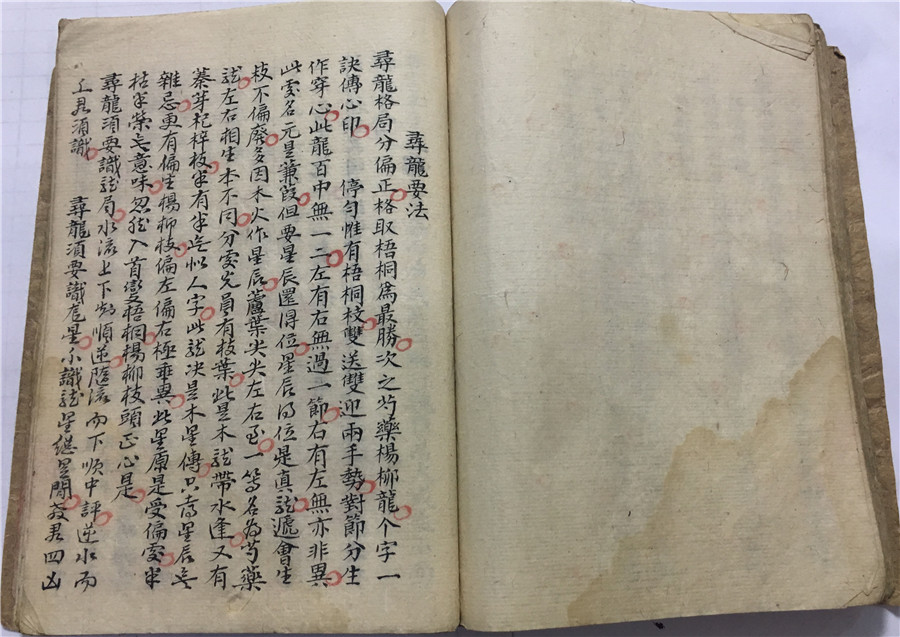 尋龍要法
尋龍格局分偏正格取梧桐為最勝次之芍藥楊柳龍个字一
訣傳心印 停勻惟有梧桐枝雙送雙迎兩手勢對節分生
作穿心此龍百中無一二左有右無過一節右有左無亦非異
此處名元是蒹葭但要星辰還得位星辰得位是真龍遞會生
枝不偏廢多因木火作星辰蘆葉尖尖左右至一等名為芍藥
龍左右相生本不同分處光員有枝葉此是木龍帶水逢又有
蓁芽杞梓枝半有半無似人字此龍決是木星傳只嵩星辰無
雜忌更有偏生楊柳枝偏左偏右極乖異此星原是受偏處半
枯半榮無意味忽然入首變梧桐楊柳枝頭正心是
尋龍須要識龍局水流上下知順逆隨流而下順中評逆水而
上君須識 尋龍須要識尾星不識龍星繼星閒發君四凶